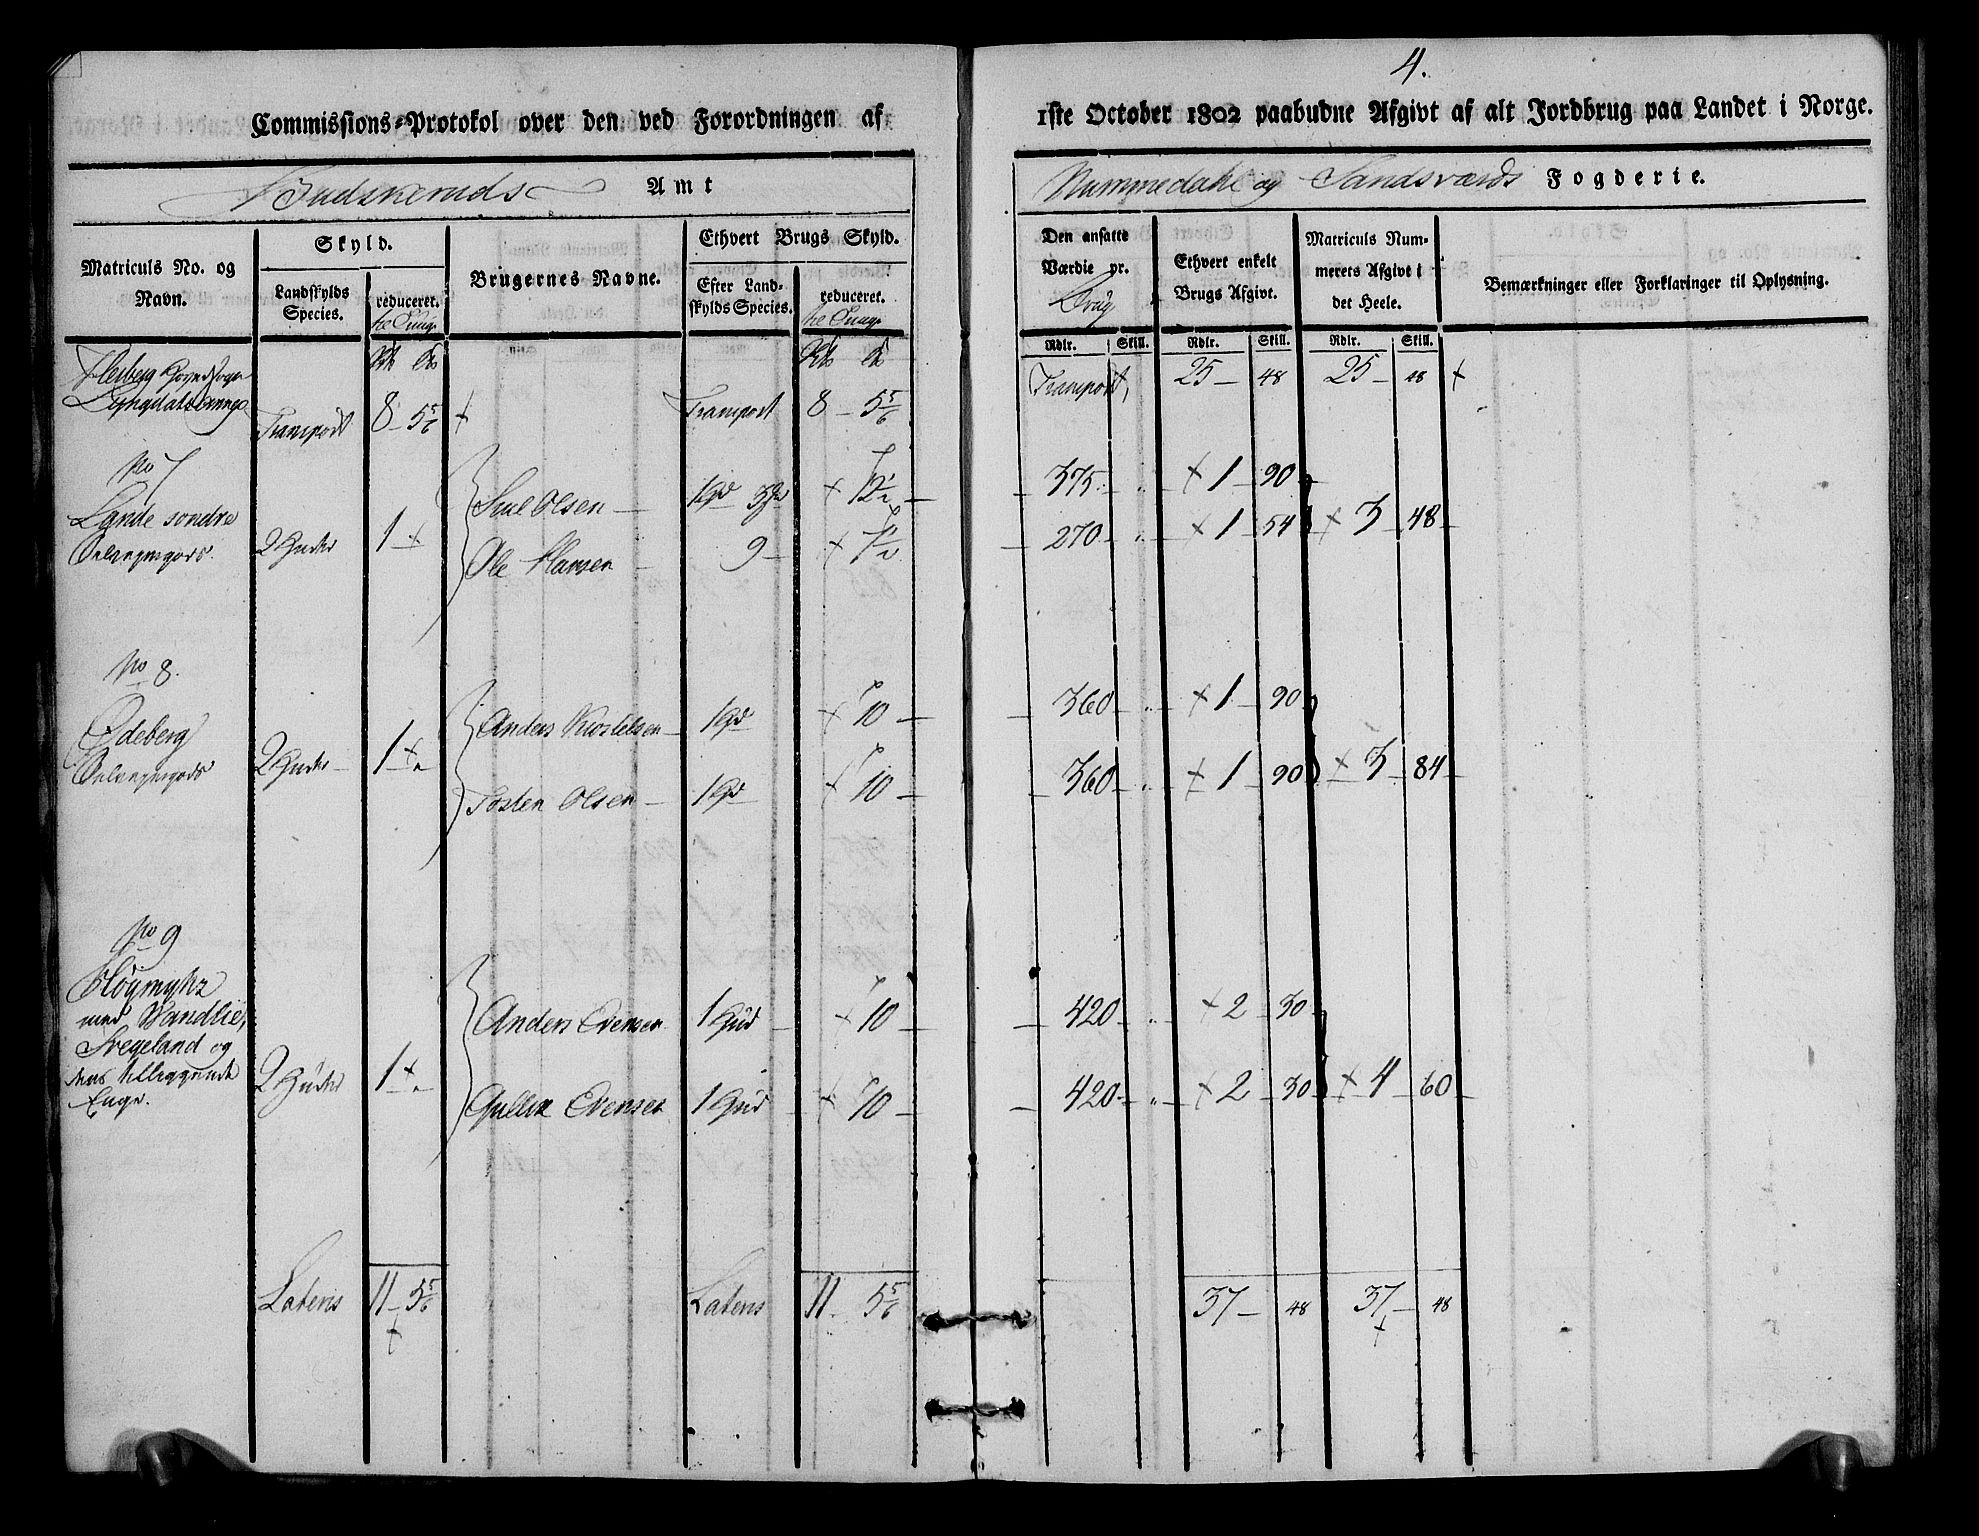 4.
Commissions-Protokol over den ved Forordningen af
1ste October 1802 paabudne Afgivt af alt Jordbrug paa Landet i Norge.
Budskeruds Amt
Nummedahl og Sandsværds Fogderie.
Matriculs No. og Navn.
Skyld.
Landskylds Species.
reduceret.
Brugernes Navne.
Ethvert Brugs Skyld.
Efter Landskylds Species.
reduceret.
Den ansatte Værdie pr. Brug
Ethvert enkelt Brugs Afgivt.
Matriculs Nummerets Afgivt i det Heele.
Bemærkninger eller Forklaringer til Oplysning.
Rdlr. Skill. Rdlr. Skill. Rdlr. Skill.
Flesberg Hovedsogn
Transport 8 - 5 5/6 + Transport 8 - 5 5/6
Transport 25 - 48 25 - 48 +
No 7
Lande sondre
2 Huder 1 +
Ole Hansen 9 - + 7 1/2
375 " + 1 - 90
270 " + 1 - 54 + 3 - 48
No 8.
Ødeberg
2 Huder 1 +
Anders + 10
Tosten Olsen + 10
360 " + 1 - 90
360 " + 1 - 90 + 3 - 84
No 9
Høymyhr
med Wandlie,
og
Enge.
2 Huder 1 +
Anders Evensen 1 Hud + 10
Gullik Evensen 1 Hud + 10
420 " + 2 - 30
420 " + 2 - 30 + 4 - 60
Lateris 11 - 5 5/6 + Lateris 11 - 5 5/6
37 - 48 37 - 48 +